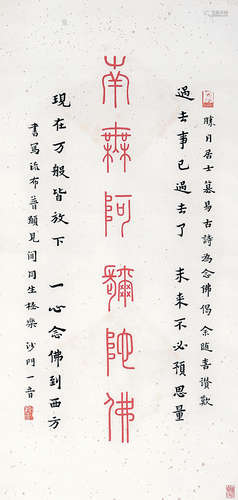 勝月居士易古詩為念佛偈余随喜讚歎
過去事已過去了 未来不必預思量
南無阿彌陀佛
現在万般皆放下 一心念佛到西方
書寫流布普願見聞同生極樂 沙門一音